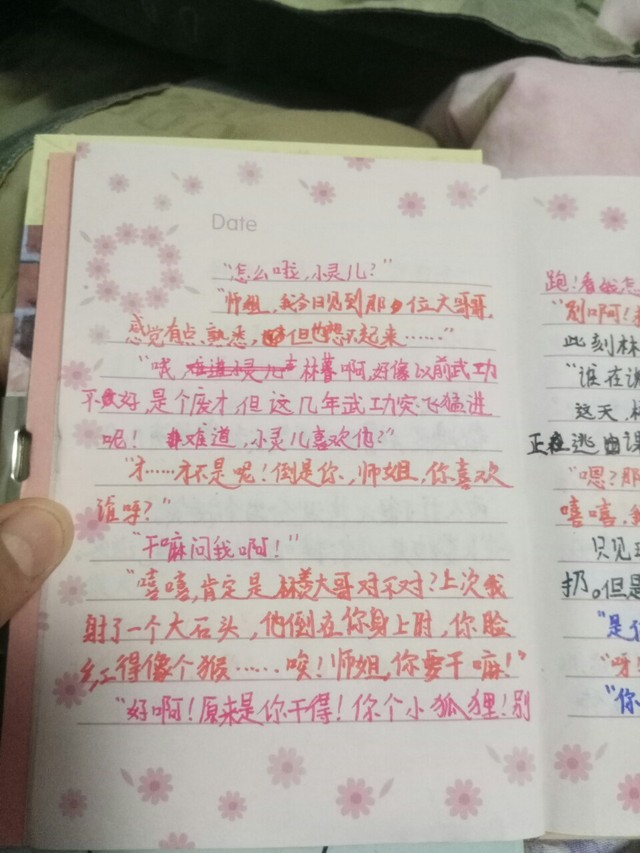 Date
"怎么啦,小灵儿?"
"师姐,我今日见到那位大哥哥,
感觉有点熟悉,但也想不起来……"
"哦,林暮啊,好像以前武功
不好,是个废才,但这几年武功突飞猛进
呢!难道,小灵儿喜欢他?"
"才……才不是呢!倒是你,师姐,你喜欢
谁呀?"
"干嘛问我啊!"
"嘻嘻,肯定是林大哥对不对?上次我
射了一个大石头,他倒在你身上时,你脸
红得像个猴……唉!师姐,你要干嘛!"
"好啊!原来是你干得!你个小狐狸!别
跑!看我怎
"别啊!
此刻林
"谁在
这天,
正在逃课
"嗯?那
嘻嘻,
只见
扔。但是
"是
"呀
"你